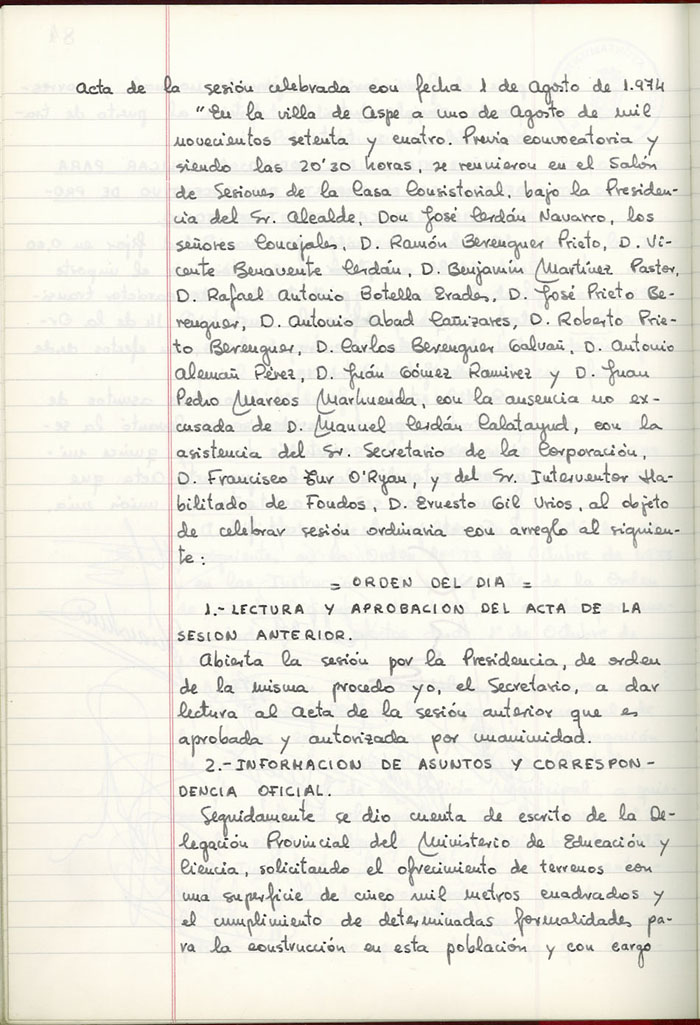 Acta de la sesión celebrada con fecha 1 de Agosto de 1.974
"En la villa de Aspe a uno de Agosto de mil
novecientos setenta y cuatro. Previa convocatoria y
siendo las 20'30 horas, se reunieron en el Salón
de Sesiones de la Casa Consistorial, bajo la Presiden-
cia del Sr. Alcalde, Don José Cerdán Navarro, los
señores Concejales, D. Ramón Berenguer Prieto, D. Vi-
cente Benavente Cerdán, D. Benjamín Martínez Pastor,
D. Rafael Antonio Botella Erades, D. José Prieto Be-
renguer, D. Antonio Abad Cañizares, D. Roberto Prie-
to Berenguer, D. Carlos Berenguer Galvañ, D. Antonio
Alemañ Pérez, D. Juán Gómez Ramirez y D. Juan
Pedro Marcos Marhuenda, con la ausencia no ex-
cusada de D. Manuel Cerdán Calatayud, con la
asistencia del Sr. Secretario de la Corporación,
D. Francisco Zur O'Ryan, y del Sr. Interventor Ha-
bilitado de Fondos, D. Ernesto Gil Urios, al objeto
de celebrar sesión ordinaria con arreglo al siguien-
te:
= ORDEN DEL DIA =
1.- LECTURA Y APROBACION DEL ACTA DE LA
SESION ANTERIOR.
Abierta la sesión por la Presidencia, de orden
de la misma procedo yo, el Secretario, a dar
lectura al Acta de la sesión anterior que es
aprobada y autorizada por unanimidad.
2.- INFORMACION DE ASUNTOS Y CORRESPON-
DENCIA OFICIAL.
Seguidamente se dio cuenta de escrito de la De-
legación Provincial del Ministerio de Educación y
Ciencia, solicitando el ofrecimiento de terrenos con
una superficie de cinco mil metros cuadrados y
el cumplimiento de determinadas formalidades pa-
ra la construcción en esta población y con cargo